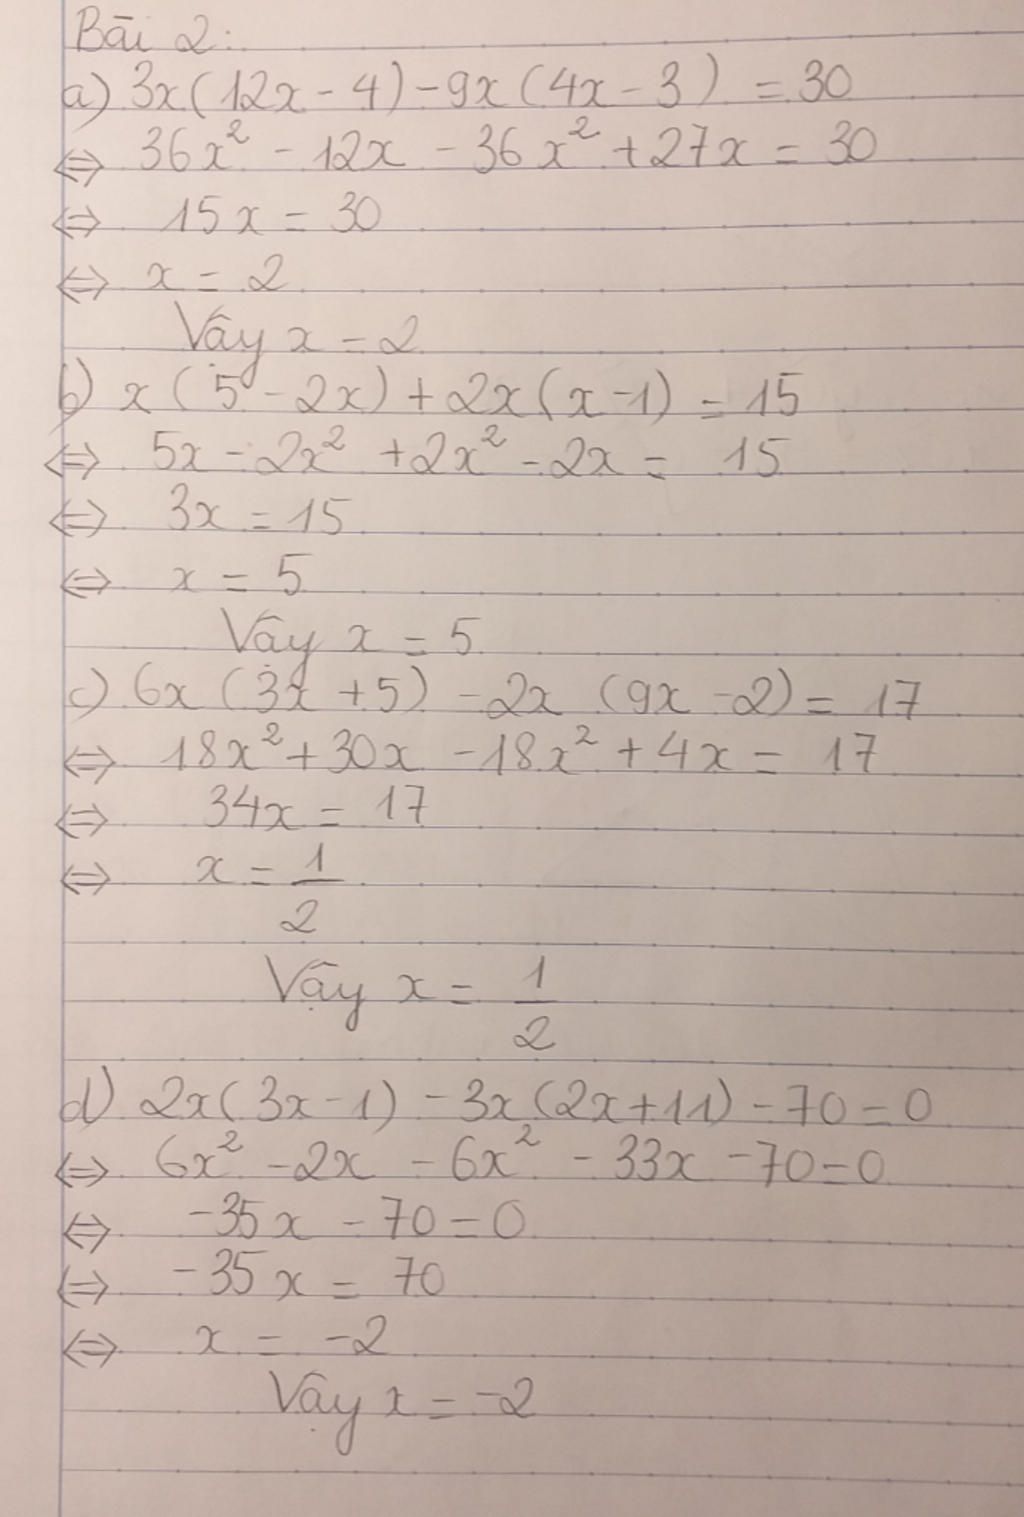 Bài 2:
a) 3x(12x - 4) - 9x(4x - 3) = 30
⇔ 36x² - 12x - 36x² + 27x = 30
⇔ 15x = 30
⇔ x = 2
Vậy x = 2
b) x(5 - 2x) + 2x(x - 1) = 15
⇔ 5x - 2x² + 2x² - 2x = 15
⇔ 3x = 15
⇔ x = 5
Vậy x = 5
c) 6x(3x + 5) - 2x(9x - 2) = 17
⇔ 18x² + 30x - 18x² + 4x = 17
⇔ 34x = 17
⇔ x = 1/2
Vậy x = 1/2
d) 2x(3x - 1) - 3x(2x + 11) - 70 = 0
⇔ 6x² - 2x - 6x² - 33x - 70 = 0
⇔ -35x - 70 = 0
⇔ -35x = 70
⇔ x = -2
Vậy x = -2